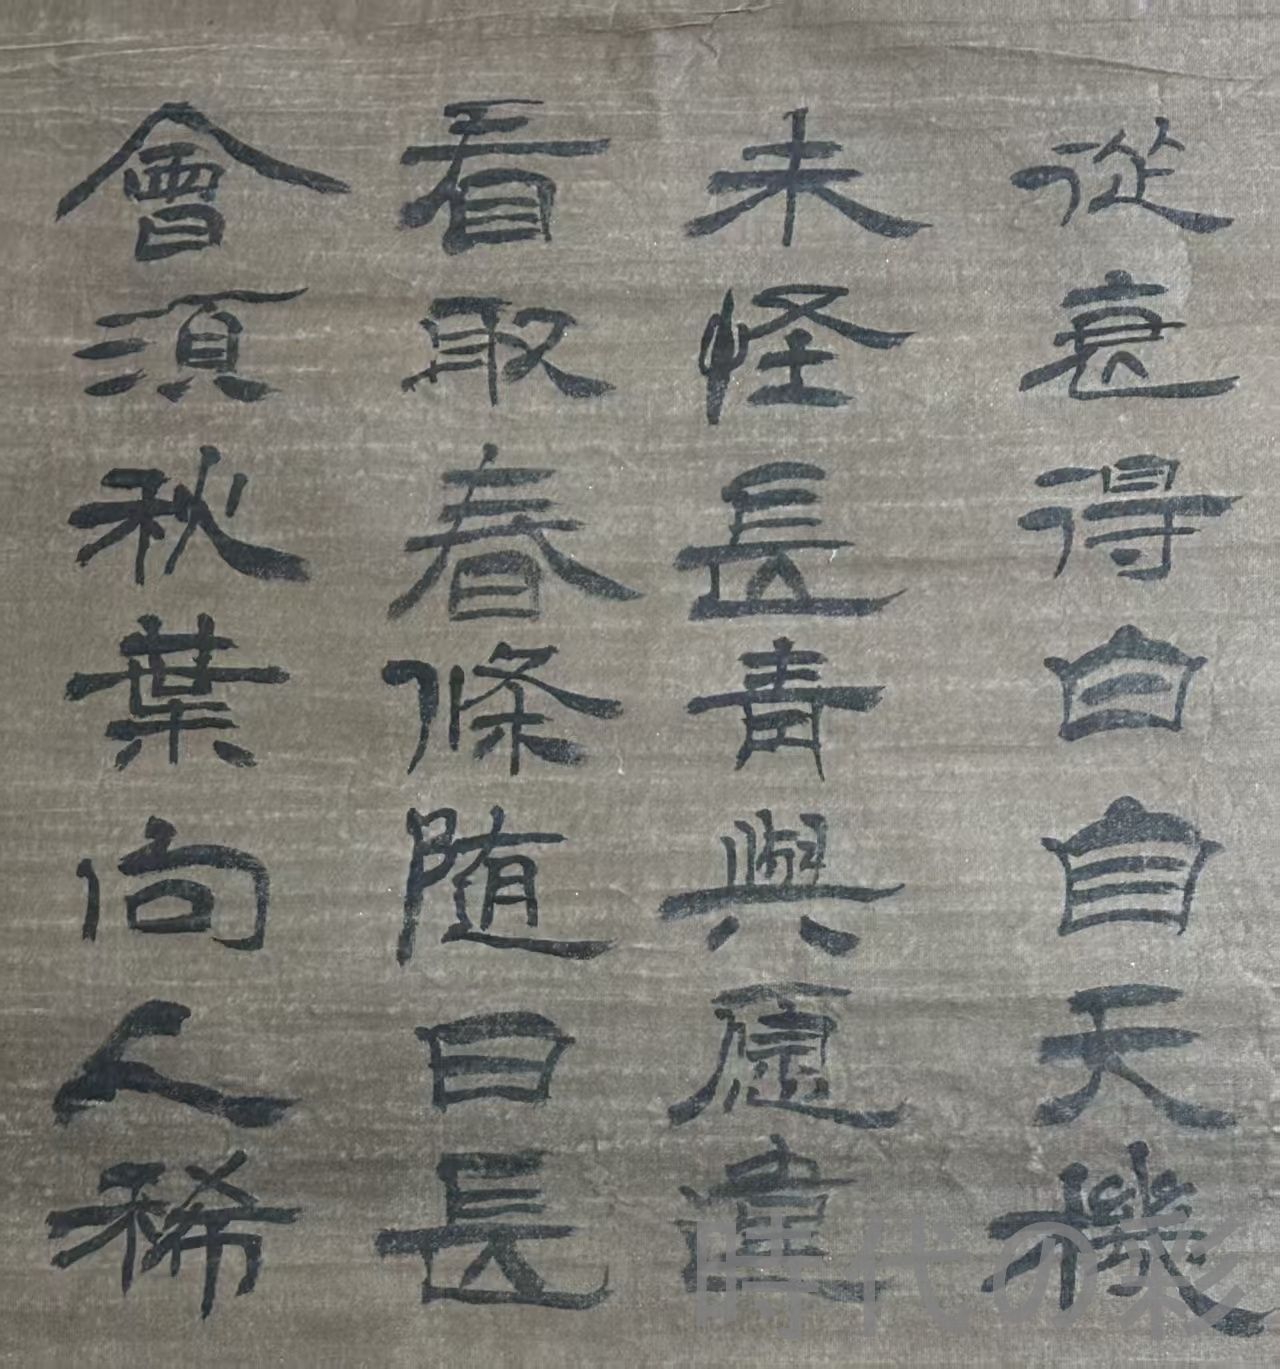 從衰得白自天機
未怪長青與願違
看取春條随日長
會須秋葉向人稀
時代の彩